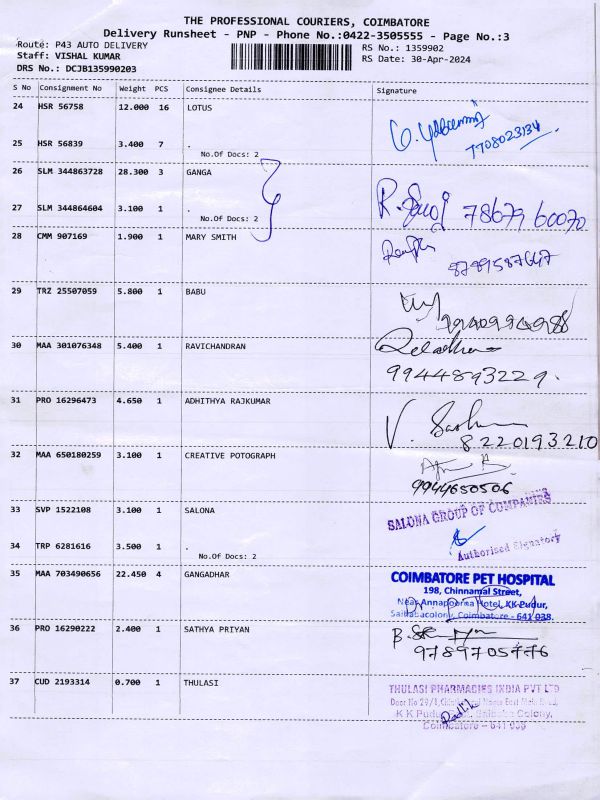 THE PROFESSIONAL COURIERS, COIMBATORE
Delivery Runsheet - PNP - Phone No.:0422-3505555 - Page No.:3
Route: P43 AUTO DELIVERY
RS No.: 1359902
Staff: VISHAL KUMAR
RS Date: 30-Apr-2024
DRS No.: DCJB135990203
S No Consignment No Weight PCS Consignee Details Signature
24 HSR 56758 12.000 16 LOTUS
7708023134
25 HSR 56839 3.400 7 .
No.Of Docs: 2
26 SLM 344863728 28.300 3 GANGA
78679 60070
27 SLM 344864604 3.100 1 .
No.Of Docs: 2
28 CMM 907169 1.900 1 MARY SMITH
29 TRZ 25507059 5.800 1 BABU
30 MAA 301076348 5.400 1 RAVICHANDRAN
9944893229.
31 PRO 16296473 4.650 1 ADHITHYA RAJKUMAR
8220193210
32 MAA 650180259 3.100 1 CREATIVE POTOGRAPH
9944650506
33 SVP 1522108 3.100 1 SALONA
SALONA GROUP OF COMPANIES
Authorised Signatory
34 TRP 6281616 3.500 1 .
No.Of Docs: 2
35 MAA 703490656 22.450 4 GANGADHAR
COIMBATORE PET HOSPITAL
198, Chinnamal Street,
Near Annapoorna Hotel, KK Pudur,
Saibabacolony, Coimbatore - 641 038.
36 PRO 16290222 2.400 1 SATHYA PRIYAN
9789705776
37 CUD 2193314 0.700 1 THULASI
THULASI PHARMACIES INDIA PVT LTD
Door No 29/1, East Main Road,
K K Pudur, Saibaba Colony,
Coimbatore - 641 038